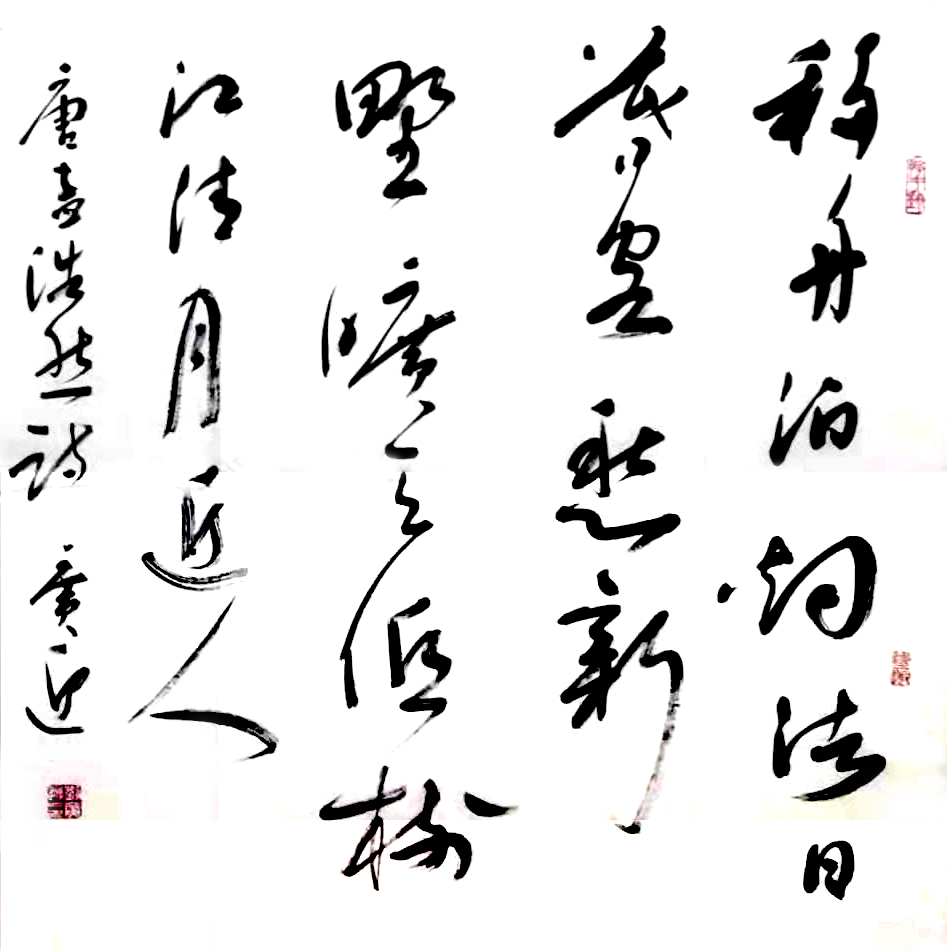 移舟泊烟渚日
暮客愁新
野曠天低樹
江清月近人
唐孟浩然詩